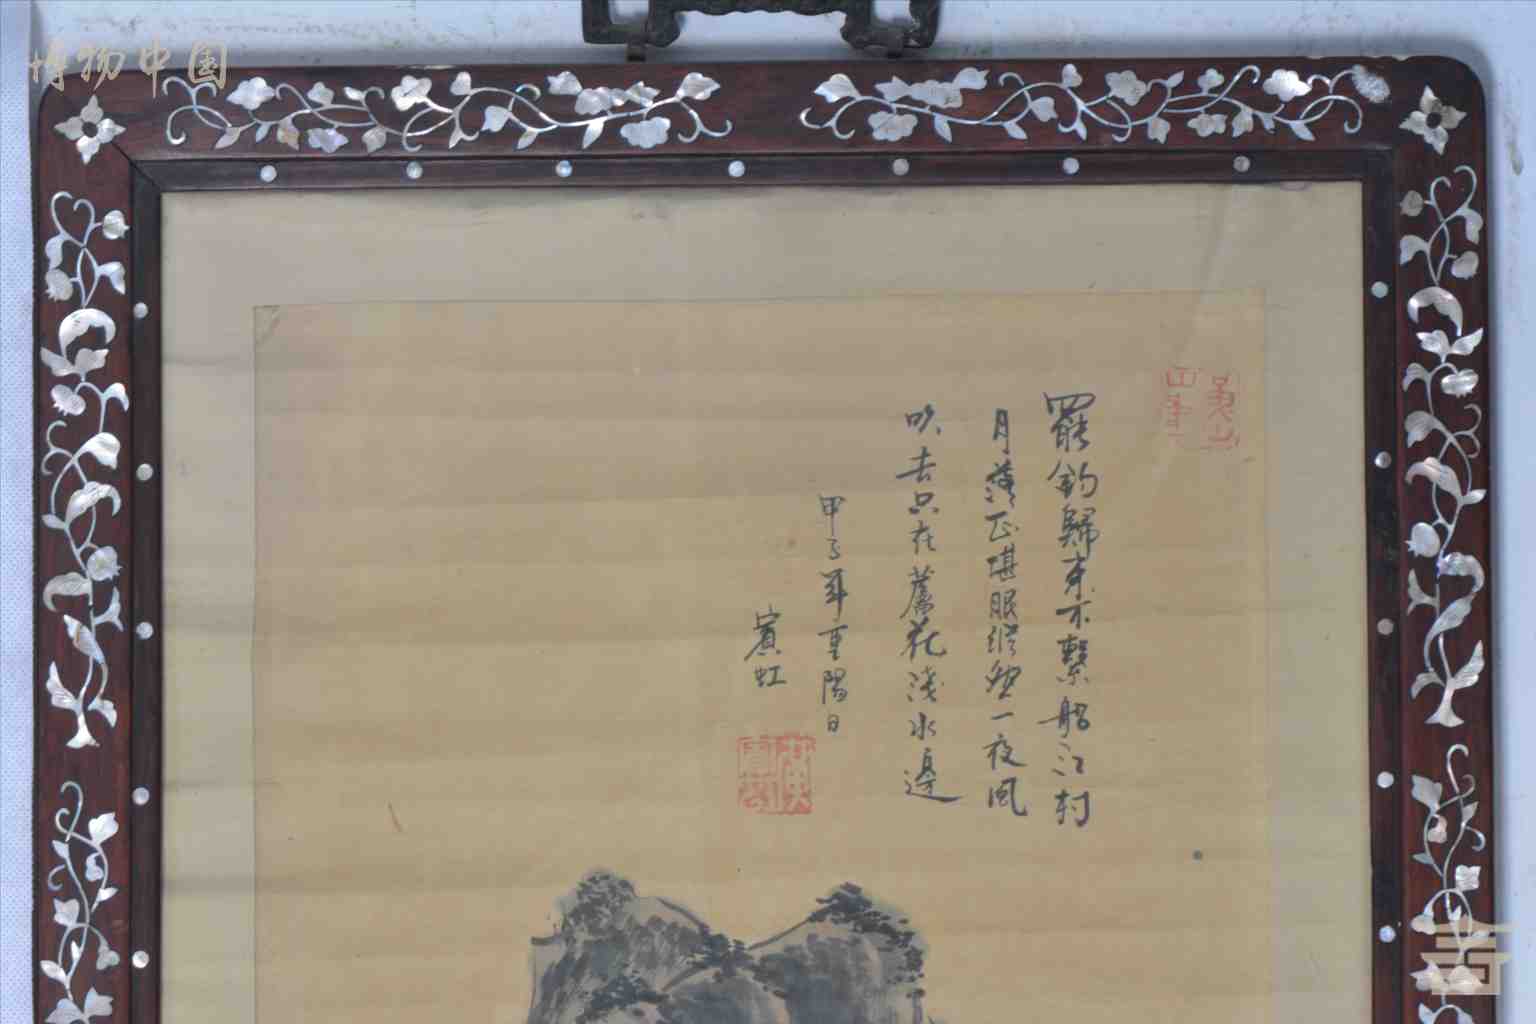 博物中国
罷釣歸來不繫船江村
月落正堪眠縱然一夜風
吹去只在蘆花淺水邊
甲子年重陽日
賓虹